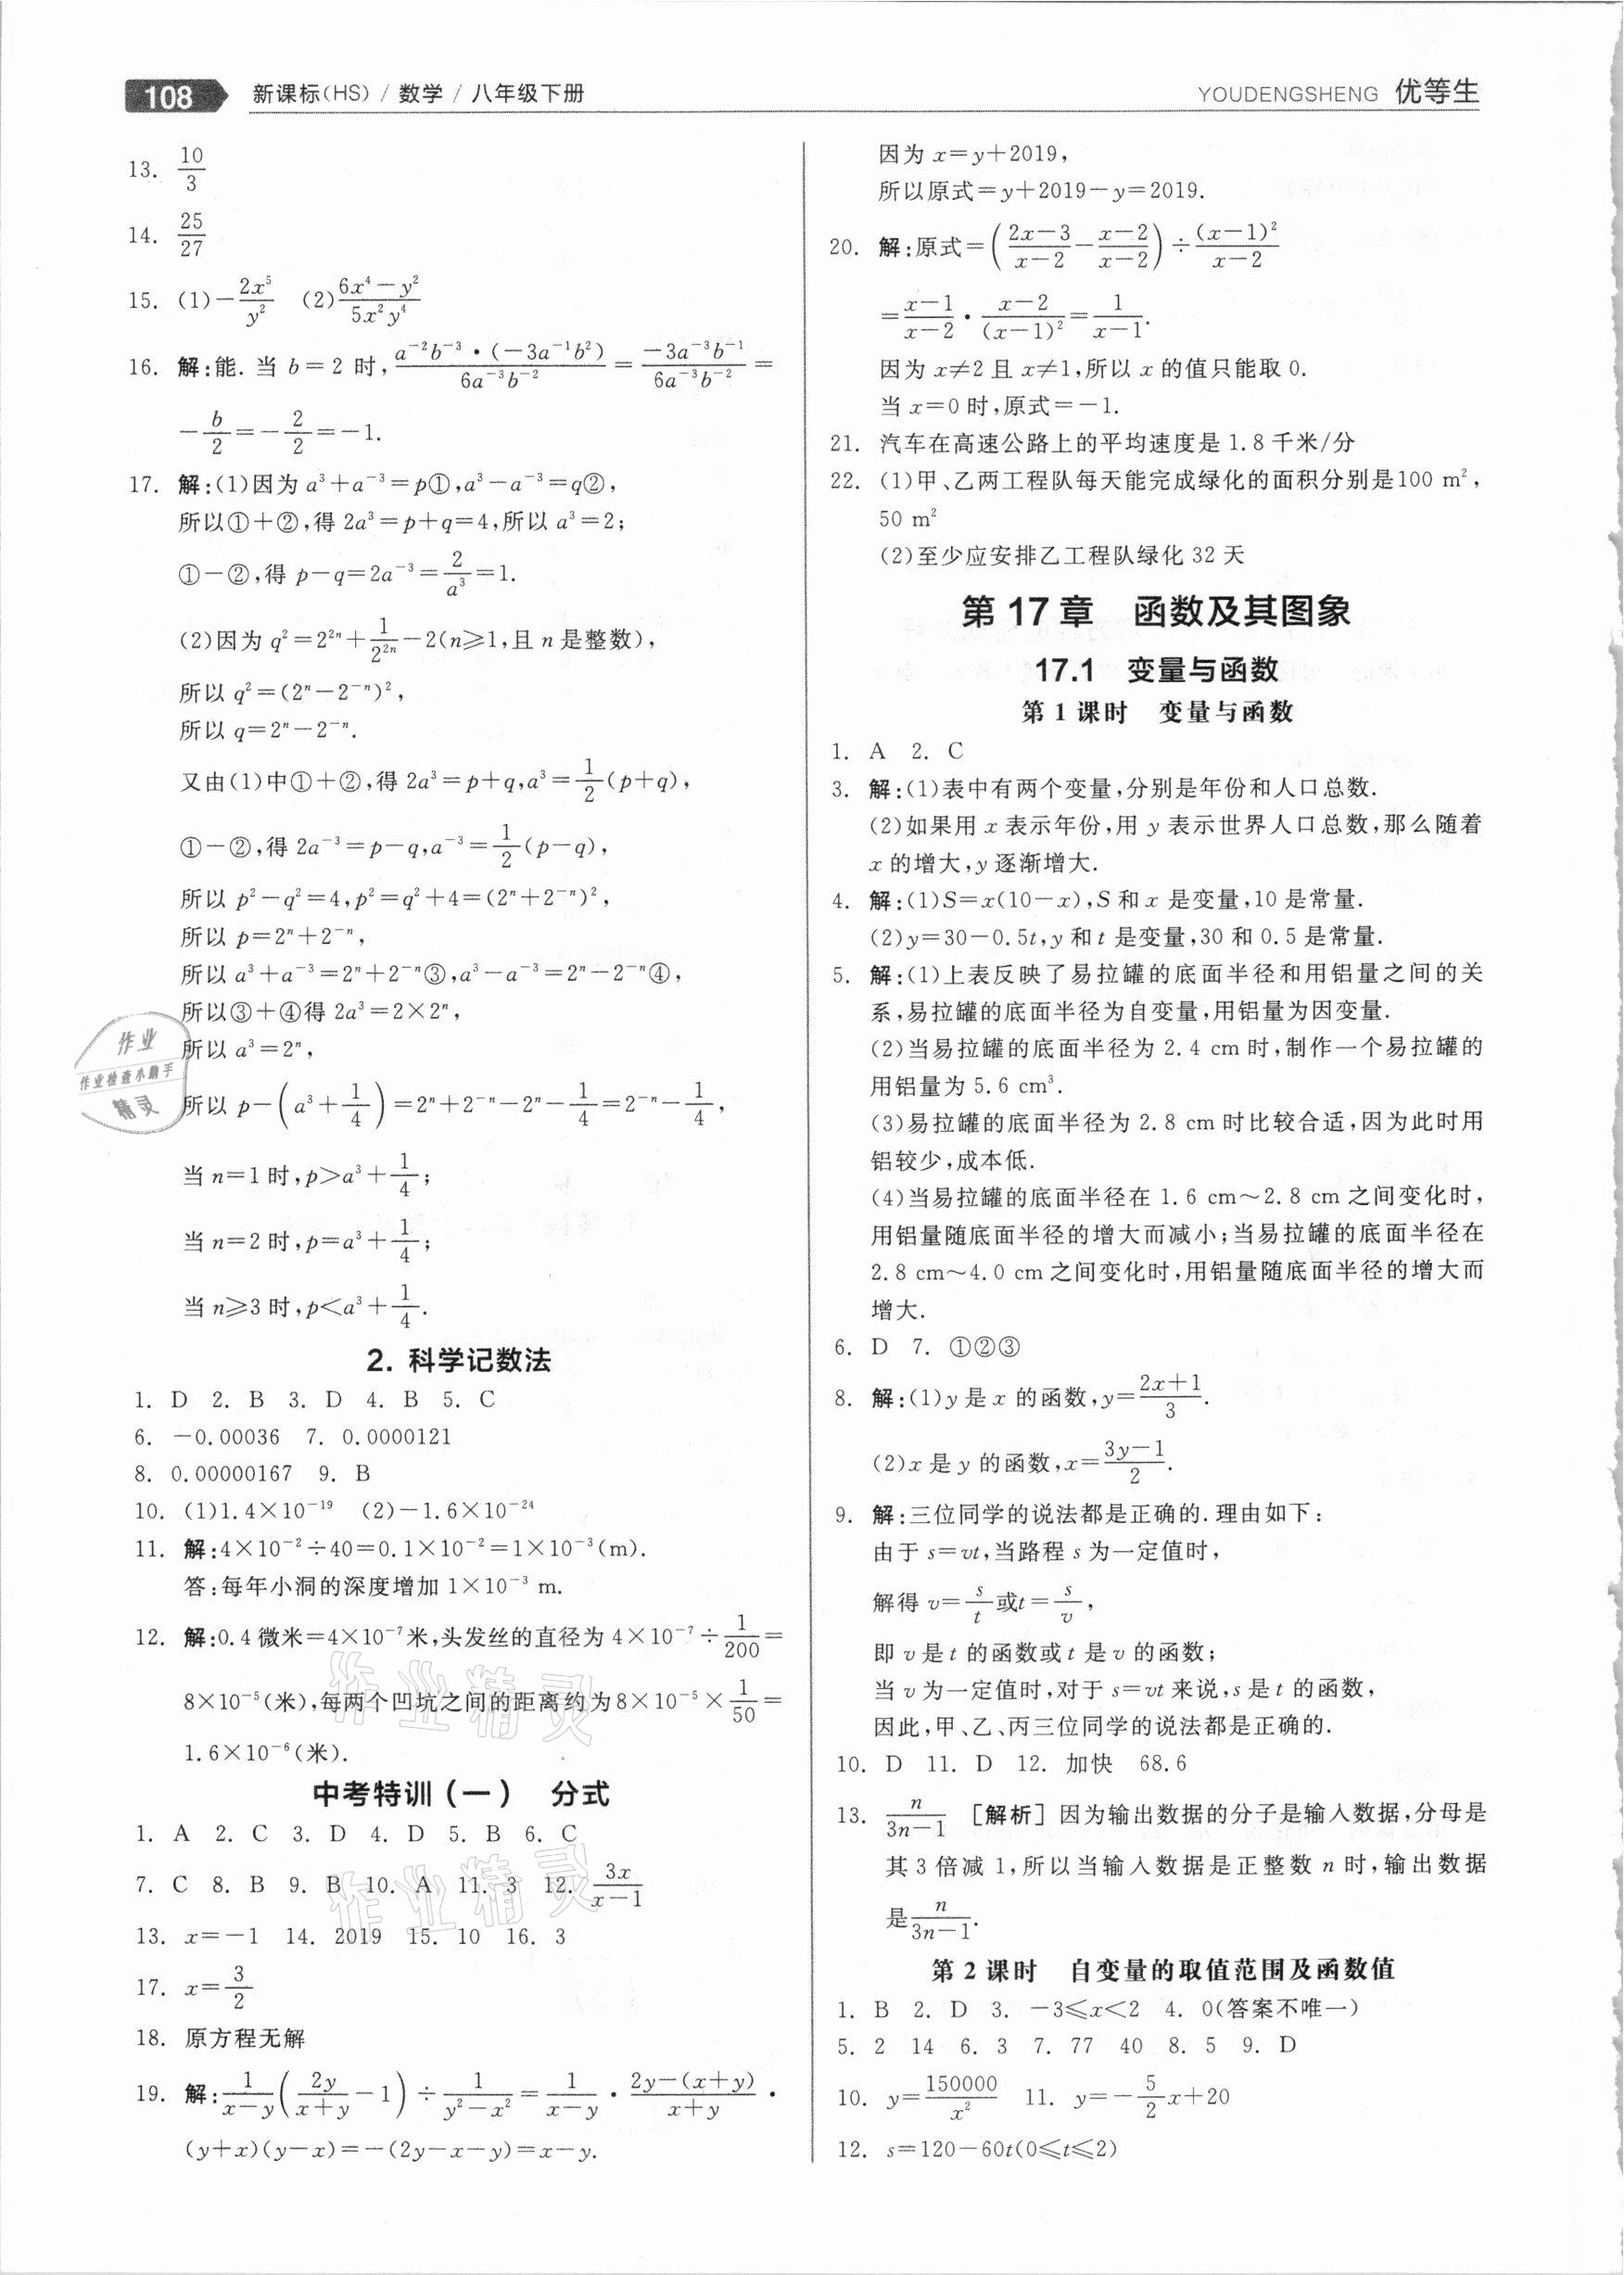 108 新课标(HS) / 数学 / 八年级下册
YOUDENGSHENG 优等生
13. 10/3
14. 25/27
15. (1)-2x⁵/y² (2)(6x⁴-y²)/(5x²y⁴)
16. 解:能. 当 b=2 时, (a⁻²b⁻³·(-3a⁻¹b²))/(6a⁻³b⁻²) = (-3a⁻³b⁻¹)/(6a⁻³b⁻²) =
-b/2=-2/2=-1.
17. 解:(1)因为 a³+a⁻³=p①,a³-a⁻³=q②,
所以①+②,得 2a³=p+q=4,所以 a³=2;
①-②,得 p-q=2a⁻³=2/a³=1.
(2)因为 q²=2²ⁿ+1/2²ⁿ-2(n≥1,且 n 是整数),
所以 q²=(2ⁿ-2⁻ⁿ)²,
所以 q=2ⁿ-2⁻ⁿ.
又由(1)中①+②,得 2a³=p+q,a³=1/2(p+q),
①-②,得 2a⁻³=p-q,a⁻³=1/2(p-q),
所以 p²-q²=4,p²=q²+4=(2ⁿ+2⁻ⁿ)²,
所以 p=2ⁿ+2⁻ⁿ,
所以 a³+a⁻³=2ⁿ+2⁻ⁿ③,a³-a⁻³=2ⁿ-2⁻ⁿ④,
所以③+④得 2a³=2×2ⁿ,
作业
所以 a³=2ⁿ,
作业检查小助手
精灵
所以 p-(a³+1/4)=2ⁿ+2⁻ⁿ-2ⁿ-1/4=2⁻ⁿ-1/4,
当 n=1 时,p>a³+1/4;
当 n=2 时,p=a³+1/4;
当 n≥3 时,p<a³+1/4.
2. 科学记数法
1. D 2. B 3. D 4. B 5. C
6. -0.00036 7. 0.0000121
8. 0.00000167 9. B
10. (1)1.4×10⁻¹⁹ (2)-1.6×10⁻²⁴
11. 解:4×10⁻²÷40=0.1×10⁻²=1×10⁻³(m).
答:每年小洞的深度增加 1×10⁻³ m.
12. 解:0.4 微米=4×10⁻⁷米,头发丝的直径为 4×10⁻⁷÷1/200=
8×10⁻⁵(米),每两个凹坑之间的距离约为8×10⁻⁵×1/50=
1.6×10⁻⁶(米).
作业精灵
中考特训(一) 分式
1. A 2. C 3. D 4. D 5. B 6. C
7. C 8. B 9. B 10. A 11. 3 12. 3x/(x-1)
作业精灵
13. x=-1 14. 2019 15. 10 16. 3
17. x=3/2
18. 原方程无解
19. 解:1/(x-y)(2y/(x+y)-1)÷1/(y²-x²)=1/(x-y)·(2y-(x+y))/(x+y)·
(y+x)(y-x)=-(2y-x-y)=x-y.
因为 x=y+2019,
所以原式=y+2019-y=2019.
20. 解:原式=((2x-3)/(x-2)-(x-2)/(x-2))÷(x-1)²/(x-2)
=(x-1)/(x-2)·(x-2)/(x-1)²=1/(x-1).
因为 x≠2 且 x≠1,所以 x 的值只能取 0.
当 x=0 时,原式=-1.
21. 汽车在高速公路上的平均速度是 1.8 千米/分
22. (1)甲、乙两工程队每天能完成绿化的面积分别是100 m²,
50 m²
(2)至少应安排乙工程队绿化 32 天
第 17 章 函数及其图象
17.1 变量与函数
第 1 课时 变量与函数
1. A 2. C
3. 解:(1)表中有两个变量,分别是年份和人口总数.
(2)如果用 x 表示年份,用 y 表示世界人口总数,那么随着
x 的增大,y 逐渐增大.
4. 解:(1)S=x(10-x),S 和 x 是变量,10 是常量.
(2)y=30-0.5t,y 和 t 是变量,30 和 0.5 是常量.
5. 解:(1)上表反映了易拉罐的底面半径和用铝量之间的关
系,易拉罐的底面半径为自变量,用铝量为因变量.
(2)当易拉罐的底面半径为 2.4 cm 时,制作一个易拉罐的
用铝量为 5.6 cm³.
(3)易拉罐的底面半径为 2.8 cm 时比较合适,因为此时用
铝较少,成本低.
(4)当易拉罐的底面半径在 1.6 cm~2.8 cm 之间变化时,
用铝量随底面半径的增大而减小;当易拉罐的底面半径在
2.8 cm~4.0 cm 之间变化时,用铝量随底面半径的增大而
增大.
6. D 7. ①②③
8. 解:(1)y 是 x 的函数,y=(2x+1)/3.
(2)x 是 y 的函数,x=(3y-1)/2.
9. 解:三位同学的说法都是正确的.理由如下:
由于 s=vt,当路程 s 为一定值时,
解得 v=s/t或t=s/v,
即 v 是 t 的函数或 t 是 v 的函数;
当 v 为一定值时,对于 s=vt 来说,s 是 t 的函数,
因此,甲、乙、丙三位同学的说法都是正确的.
10. D 11. D 12. 加快 68.6
13. n/(3n-1) [解析]因为输出数据的分子是输入数据,分母是
其 3 倍减 1,所以当输入数据是正整数 n 时,输出数据
是n/(3n-1).
第 2 课时 自变量的取值范围及函数值
1. B 2. D 3. -3≤x<2 4. 0(答案不唯一)
5. 2 14 6. 3 7. 77 40 8. 5 9. D
10. y=150000/x² 11. y=-5/2x+20
12. s=120-60t(0≤t≤2)